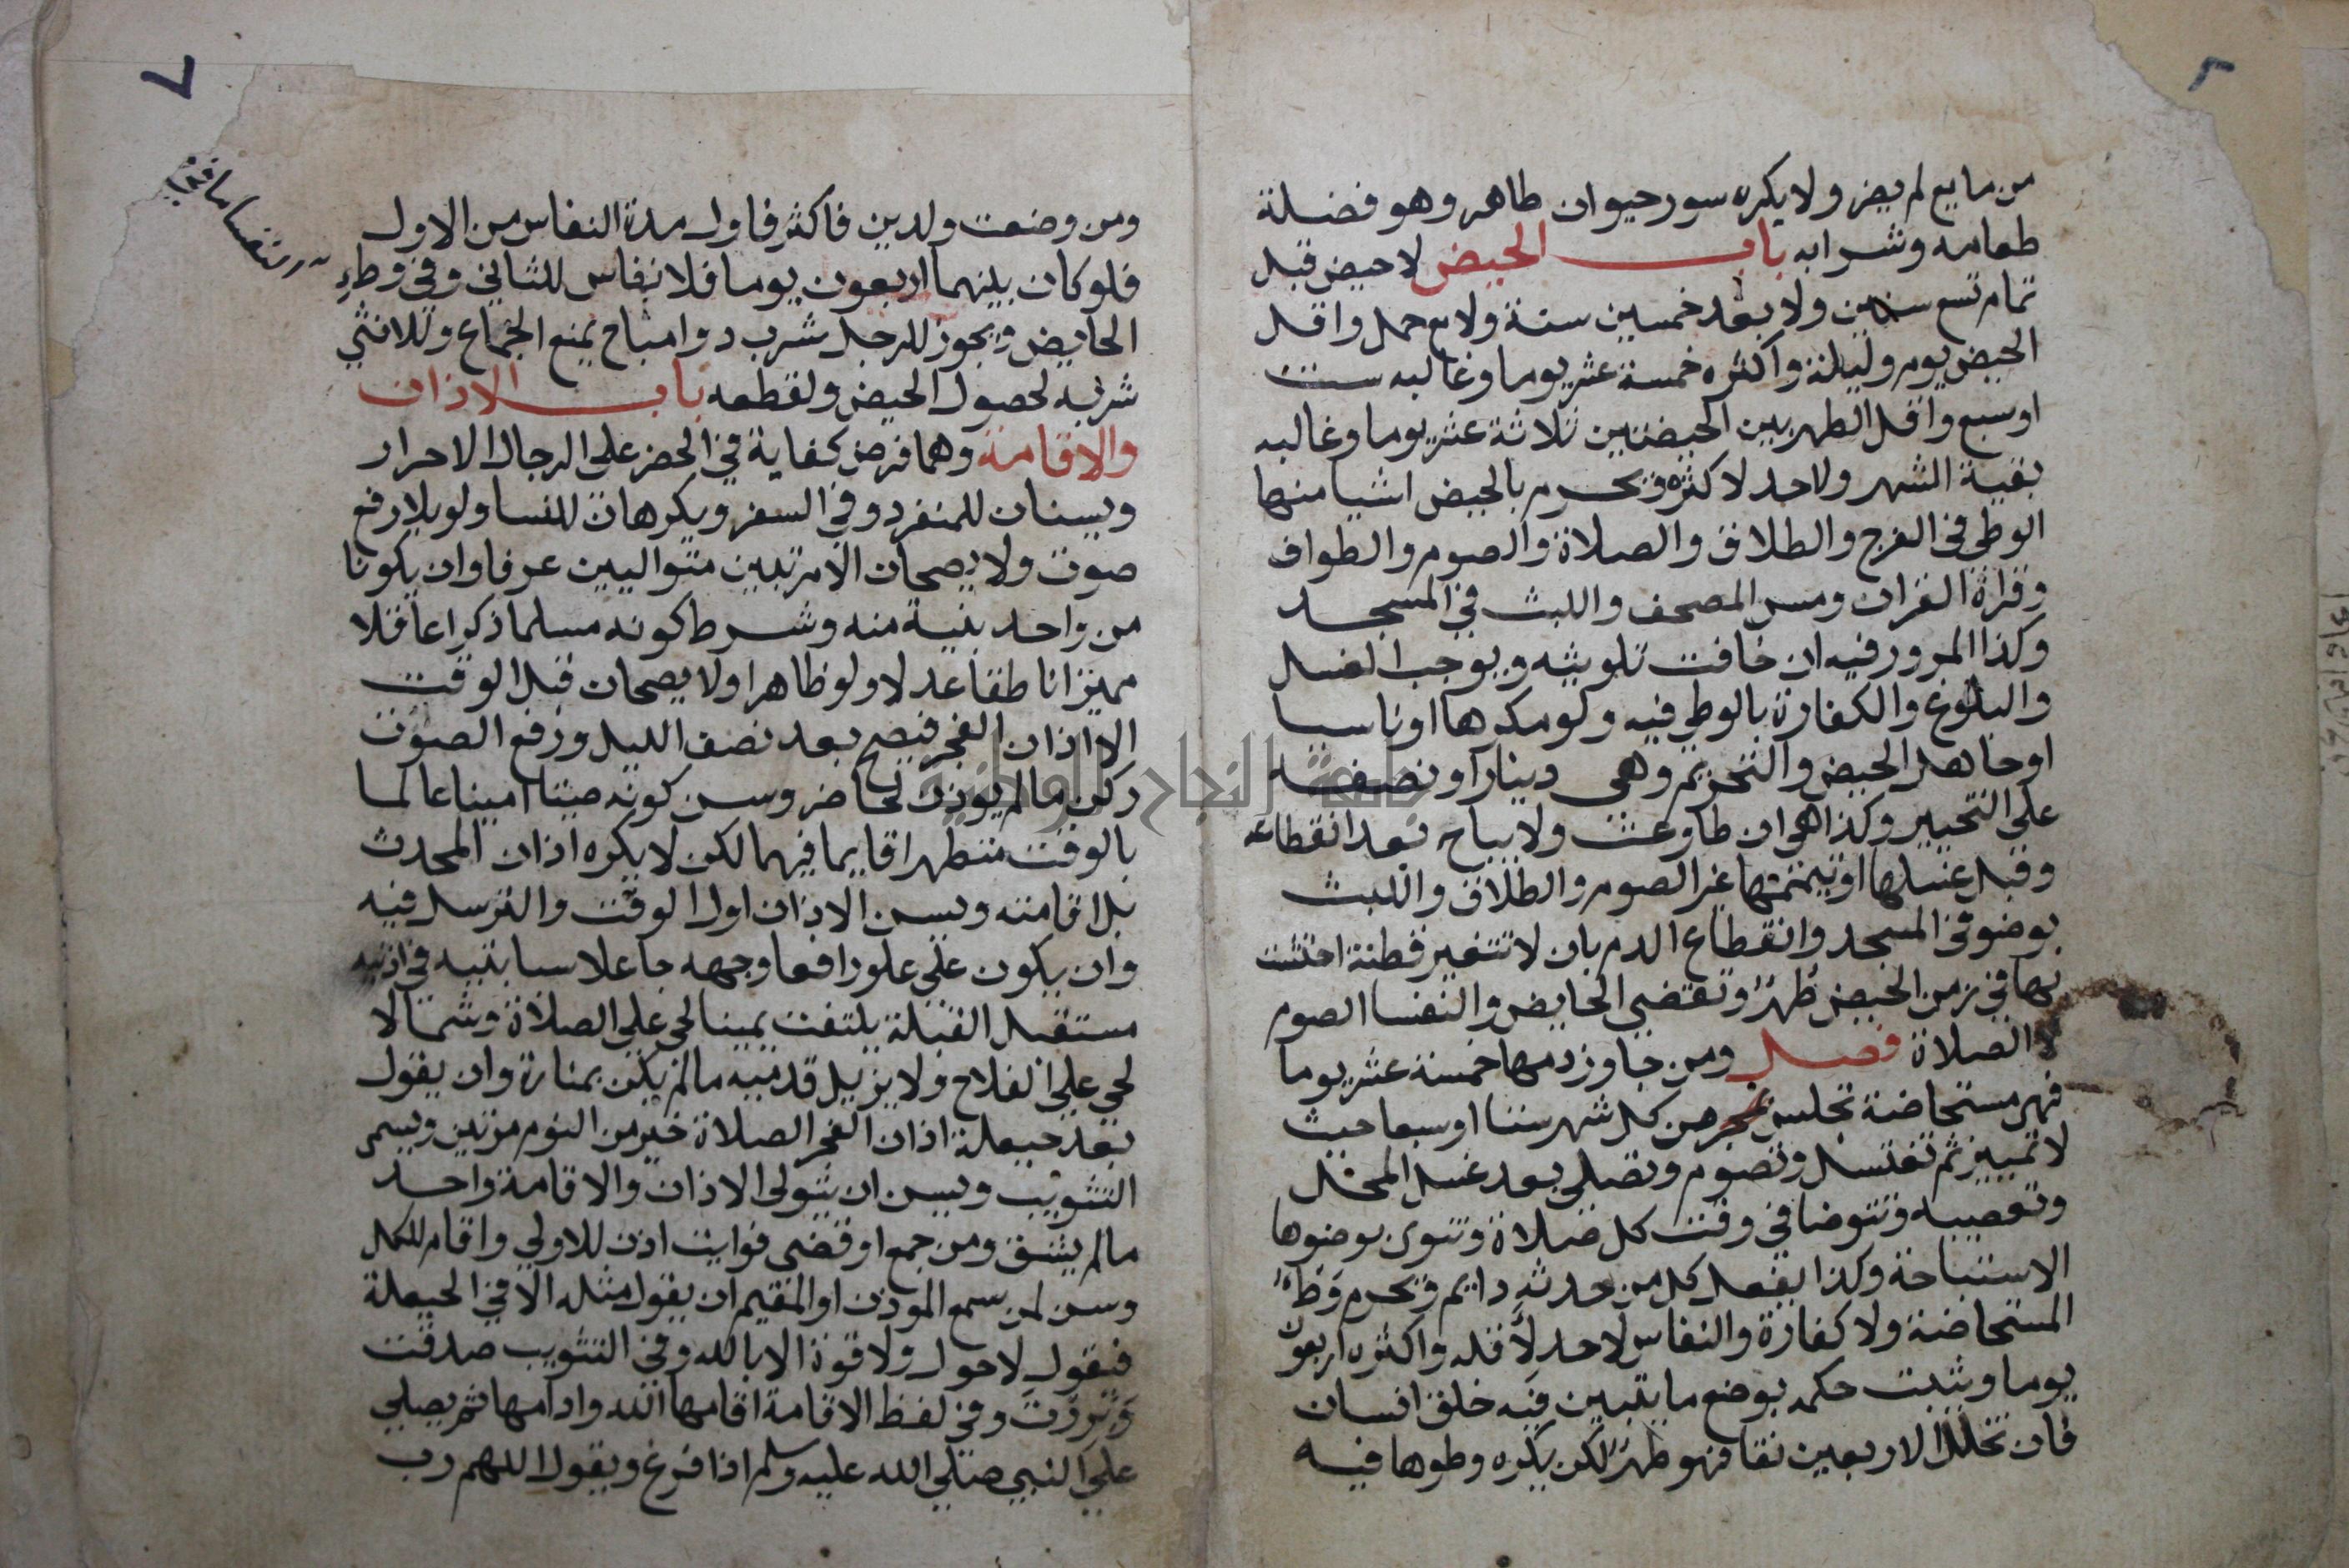 من مايع لم يضر ولا يكره سور حيوان طاهر وهو فضلة
طعامه وشرابه باب الحيض لا حيض قبل
تمام تسع سنين ولا بعد خمسين سنة ولا مع حمل واقل
الحيض يوم وليلة واكثره خمسة عشر يوما وغالبه ست
او سبع واقل الطهر بين الحيضتين ثلاثة عشر يوما وغالبه
بقية الشهر ولا حد لاكثره ويحرم بالحيض اشيا منها
الوطي في الفرج والطلاق والصلاة والصوم والطواف
وقراة القران ومس المصحف واللبث في المسجد
وكذا المرور فيه ان خافت تلويثه ويوجب الغسل
والبلوغ والكفارة بالوطي فيه ولو مكرها او ناسيا
او جاهل الحيض والتحريم وهي دينار او نصفه
على التخيير وكذا هي ان طاوعت ولا يباح بعد انقطاعه
وقبل غسلها او تيممها غير الصوم والطلاق واللبث
بوضو في المسجد وانقطاع الدم بان لا تتغير قطنة احتشت
بها في زمن الحيض طهر وتقضي الحايض والنفسا الصوم
لا الصلاة فصل ومن جاوز دمها خمسة عشر يوما
فهي مستحاضة تجلس من كل شهر ستا او سبعا حيث
لا تمييز ثم تغتسل وتصوم وتصلي بعد غسل المحل
وتعصيبه وتتوضا في وقت كل صلاة وتنوي بوضوها
الاستباحة وكذا يفعل كل من حدثه دايم ويحرم وطء
المستحاضة ولا كفارة والنفاس لا حد لاقله واكثره اربعون
يوما ويثبت حكمه بوضع ما يتبين فيه خلق انسان
فان تخلل الاربعين نقا فهو طهر لكن يكره وطوها فيه
٧
ومن وضعت ولدين فاكثر فاول مدة النفاس من الاول
فلو كان بينهما اربعون يوما فلا نفاس للثاني وفي وطء
الحايض ويجوز للرجل شرب دوا مباح يمنع الجماع وللانثي
شربه لحصول الحيض ولقطعه باب الاذان
والاقامة وهما فرض كفاية في الحضر على الرجال الاحرار
ويسنان للمنفرد وفي السفر ويكرهان للنسا ولو بلا رفع
صوت ولا يصحان الا مرتبين متواليين عرفا وان يكونا
من واحد بنية منه وشرط كونه مسلما ذكرا عاقلا
مميزا ناطقا عدلا ولو ظاهرا ولا يصحان قبل الوقت
الا اذان الفجر فيصح بعد نصف الليل ورفع الصوت
ركن ما لم يوذن لحاضر وسن كونه صيتا امينا عالما
بالوقت متطهرا قايما فيهما لكن لا يكره اذان المحدث
بل اقامته ويسن الاذان اول الوقت والترسل فيه
وان يكون على علو رافعا وجهه جاعلا سبابتيه في اذنيه
مستقبل القبلة يلتفت يمينا لحي على الصلاة وشمالا
لحي على الفلاح ولا يزيل قدميه ما لم يكن بمنارة وان يقول
بعد حيعلة اذان الفجر الصلاة خير من النوم مرتين ويسمى
التثويب ويسن ان يتولى الاذان والاقامة واحد
ما لم يشق ومن جمع او قضى فوايت اذن للاولى واقام للكل
وسن لمن سمع الموذن او المقيم ان يقول مثله الا في الحيعلة
فيقول لا حول ولا قوة الا بالله وفي التثويب صدقت
وبررت وفي لفظ الاقامة اقامها الله وادامها ثم يصلي
على النبي صلى الله عليه وسلم اذا فرغ ويقول اللهم رب
جامعة النجاح الوطنية